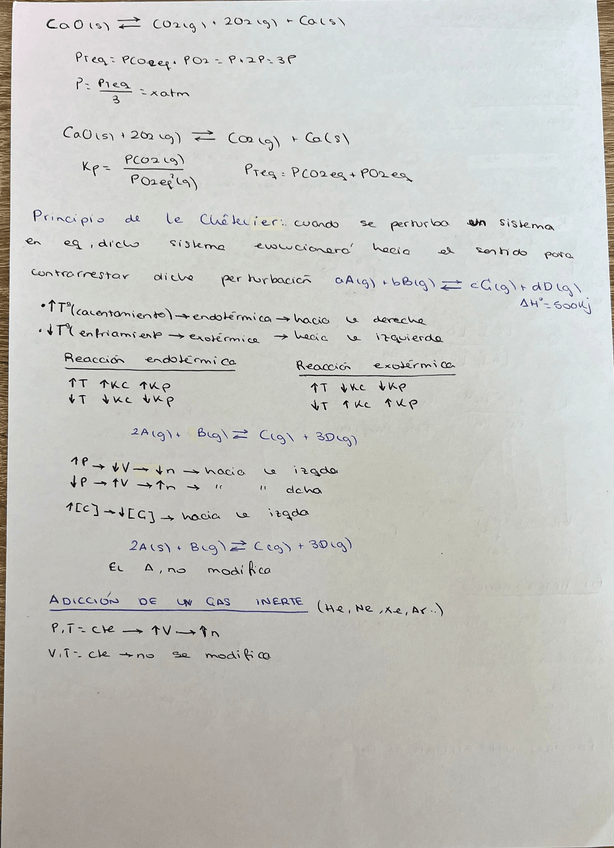 CaO(s) ⇄ CO2(g) + 2O2(g) + Ca(s)
PTeq = PCO2eq + PO2 = P + 2P = 3P
P = PTeq/3 = x atm
CaO(s) + 2O2(g) ⇄ CO2(g) + Ca(s)
Kp = PCO2(g)/PO2eq²(g)    PTeq = PCO2eq + PO2eq
Principio de le Châtelier: cuando se perturba un sistema
en eq, dicho sistema evolucionará hacia el sentido para
contrarrestar dicha perturbación aA(g) + bB(g) ⇄ cC(g) + dD(g)
ΔHº = 500kj
• ↑Tª(calentamiento) → endotérmica → hacia la derecha
• ↓Tª(enfriamiento → exotérmica → hacia la izquierda
Reacción endotérmica    Reacción exotérmica
↑T ↑Kc ↑Kp    ↑T ↓Kc ↓Kp
↓T ↓Kc ↓Kp    ↓T ↑Kc ↑Kp
2A(g) + B(g) ⇄ C(g) + 3D(g)
↑P → ↓V → ↓n → hacia la izqda
↓P → ↑V → ↑n → " " dcha
↑[C] → ↓[C] → hacia la izqda
2A(s) + B(g) ⇄ C(g) + 3D(g)
El A, no modifica
ADICCIÓN DE UN GAS INERTE (He, Ne, Xe, Ar..)
P, T = cte → ↑V → ↑n
V, T = cte → no se modifica